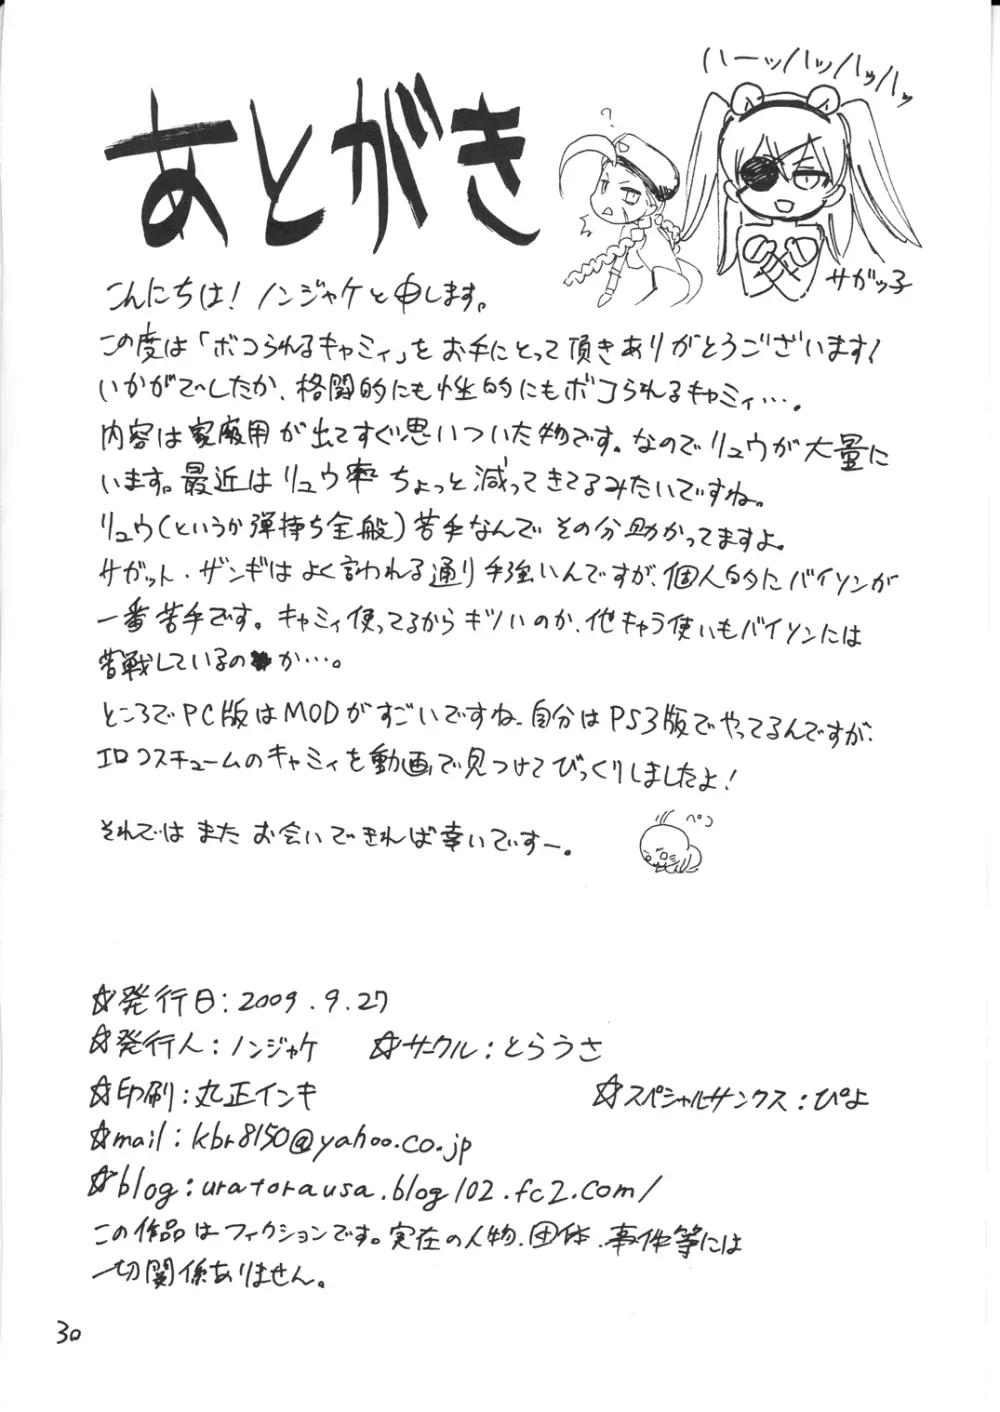 あとがき
ハーッハッハッハッ
?
サガッ子
こんにちは！ノンジャケと申します。
この度は「ボコられるキャミィ」をお手にとって頂きありがとうございます！
いかがでしたか、格闘的にも性的にもボコられるキャミィ…。
内容は家庭用が出てすぐ思いついた物です。なのでリュウが大量に
います。最近はリュウ率ちょっと減ってきてるみたいですね。
リュウ(というか弾持ち全般)苦手なんでその分助かってますよ。
サガット・ザンギはよく言われる通り手強いんですが、個人的にバイソンが
一番苦手です。キャミィ使ってるからキツいのか、他キャラ使いもバイソンには
苦戦しているのか…。
ところでPC版はMODがすごいですね、自分はPS3版でやってるんですが、
エロコスチュームのキャミィを動画で見つけてびっくりしましたよ！
それではまたお会いできれば幸いですー。
ペコ
☆発行日：2009.9.27
☆発行人：ノンジャケ ☆サークル：とらうさ
☆印刷：丸正インキ ☆スペシャルサンクス：ぴよ
☆mail：kbr8150@yahoo.co.jp
☆blog：uratorausa.blog102.fc2.com/
この作品はフィクションです。実在の人物、団体、事件等には
一切関係ありません。
30